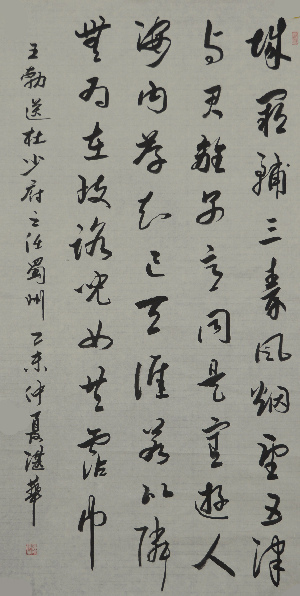 城闕輔三秦風烟望五津
与君離別意同是宦遊人
海内存知己天涯若比隣
無为在歧路兒女共霑巾
王勃送杜少府之任蜀州 乙未仲夏湛華